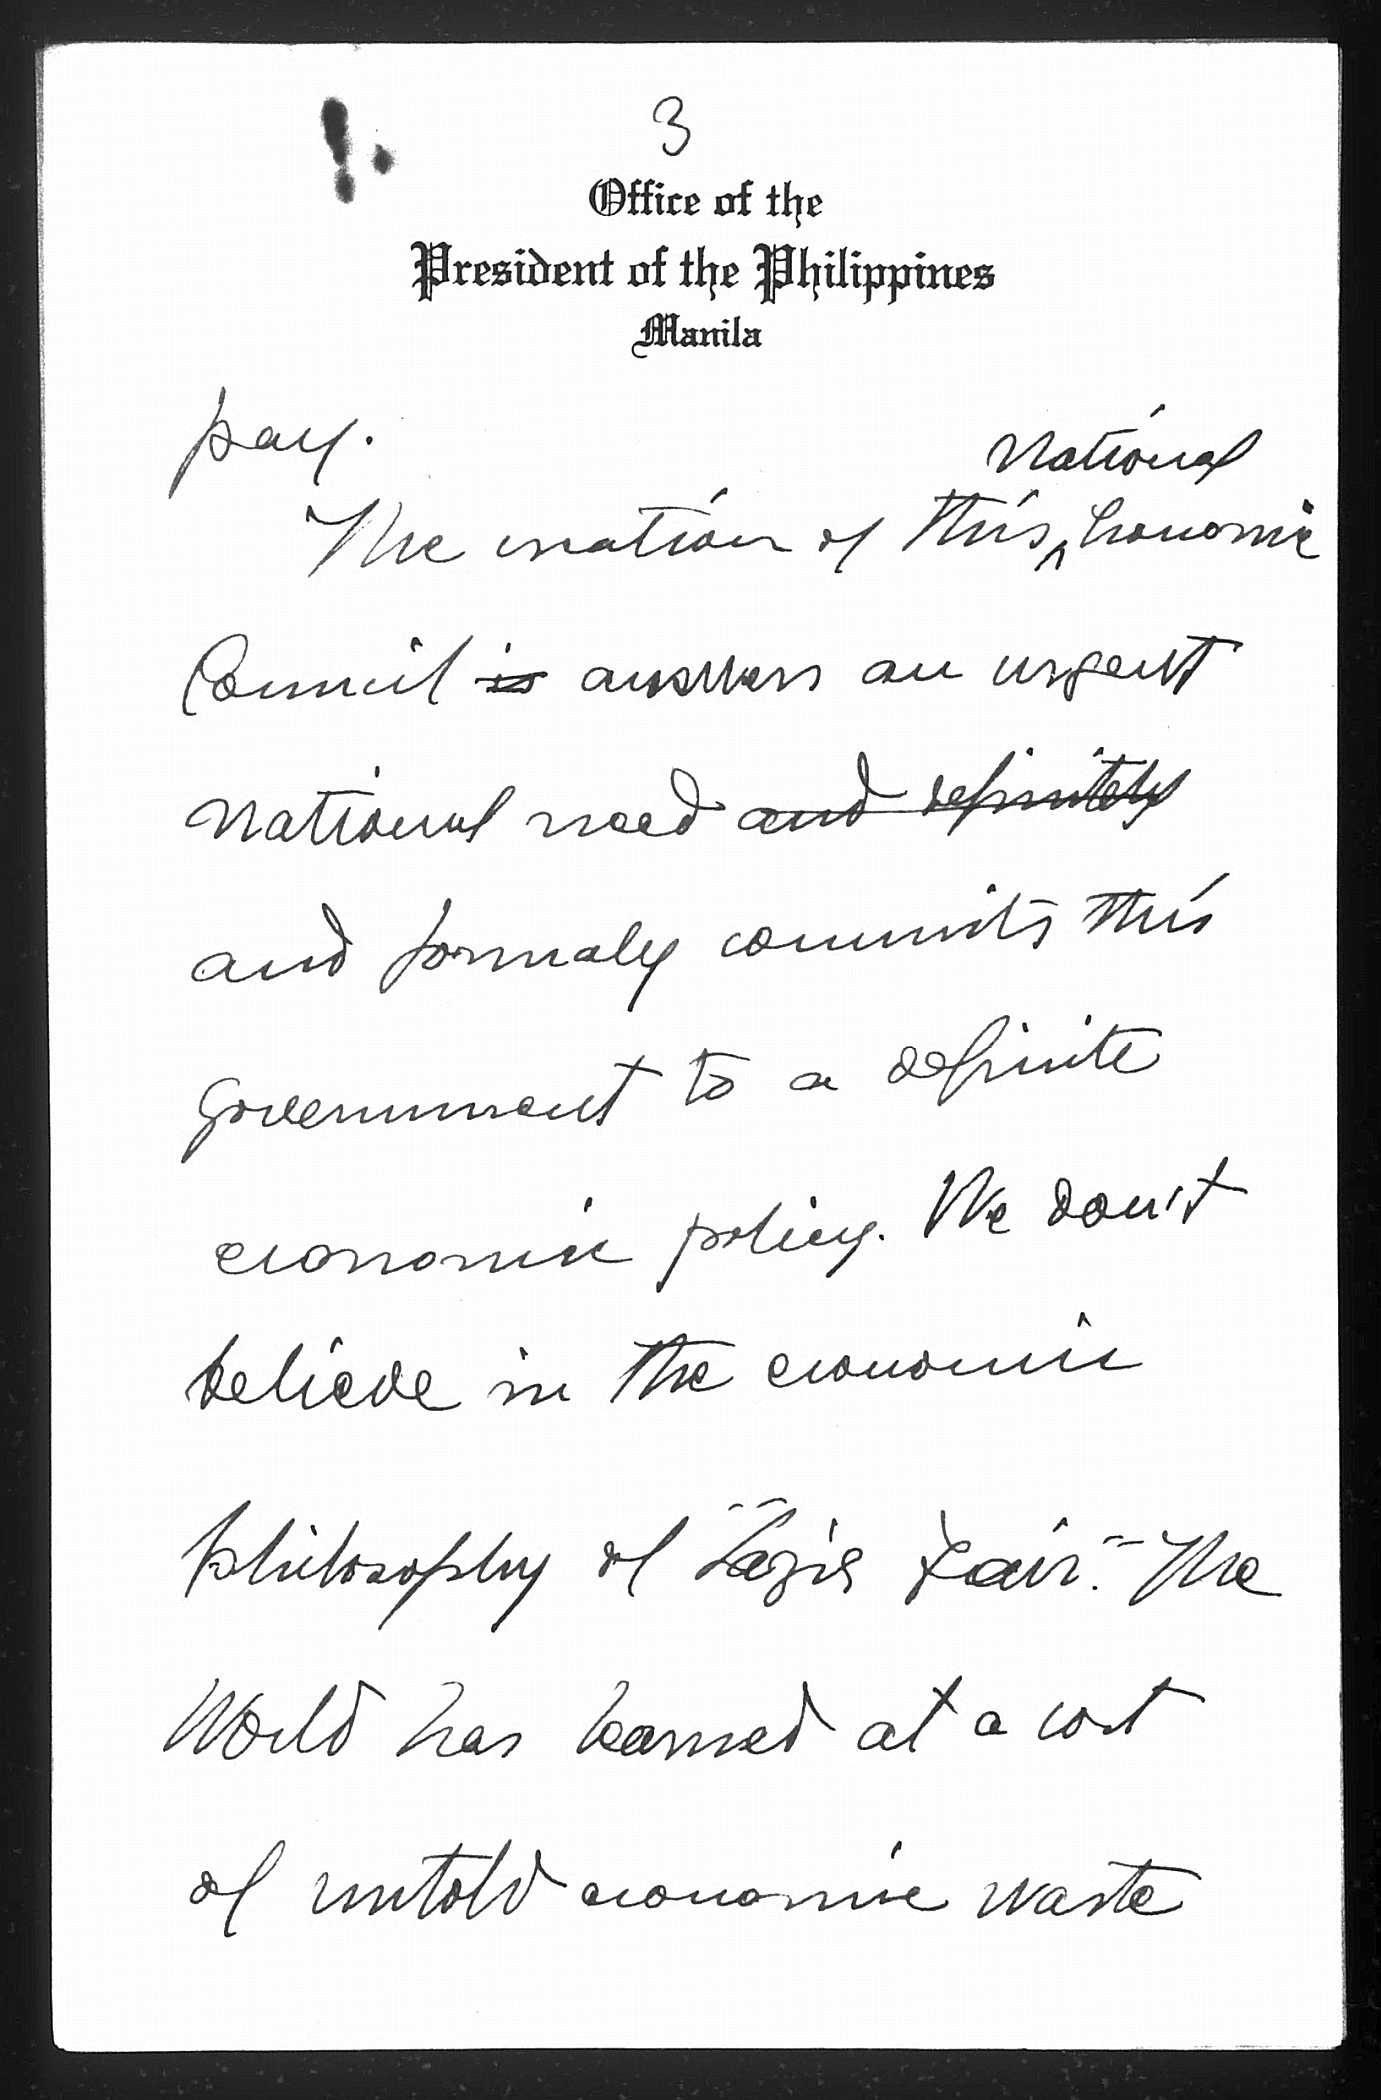 3
Office of the
President of the Philippines
Manila
pay.
National
The creation of this ^ Economic
Council is answers an urgent
National need and definitely
and formaly commits this
government to a definite
economic policy. We don't
believe in the economic
philosophy of "Lazie Fair." The
World has learned at a cost
of untold economic waste